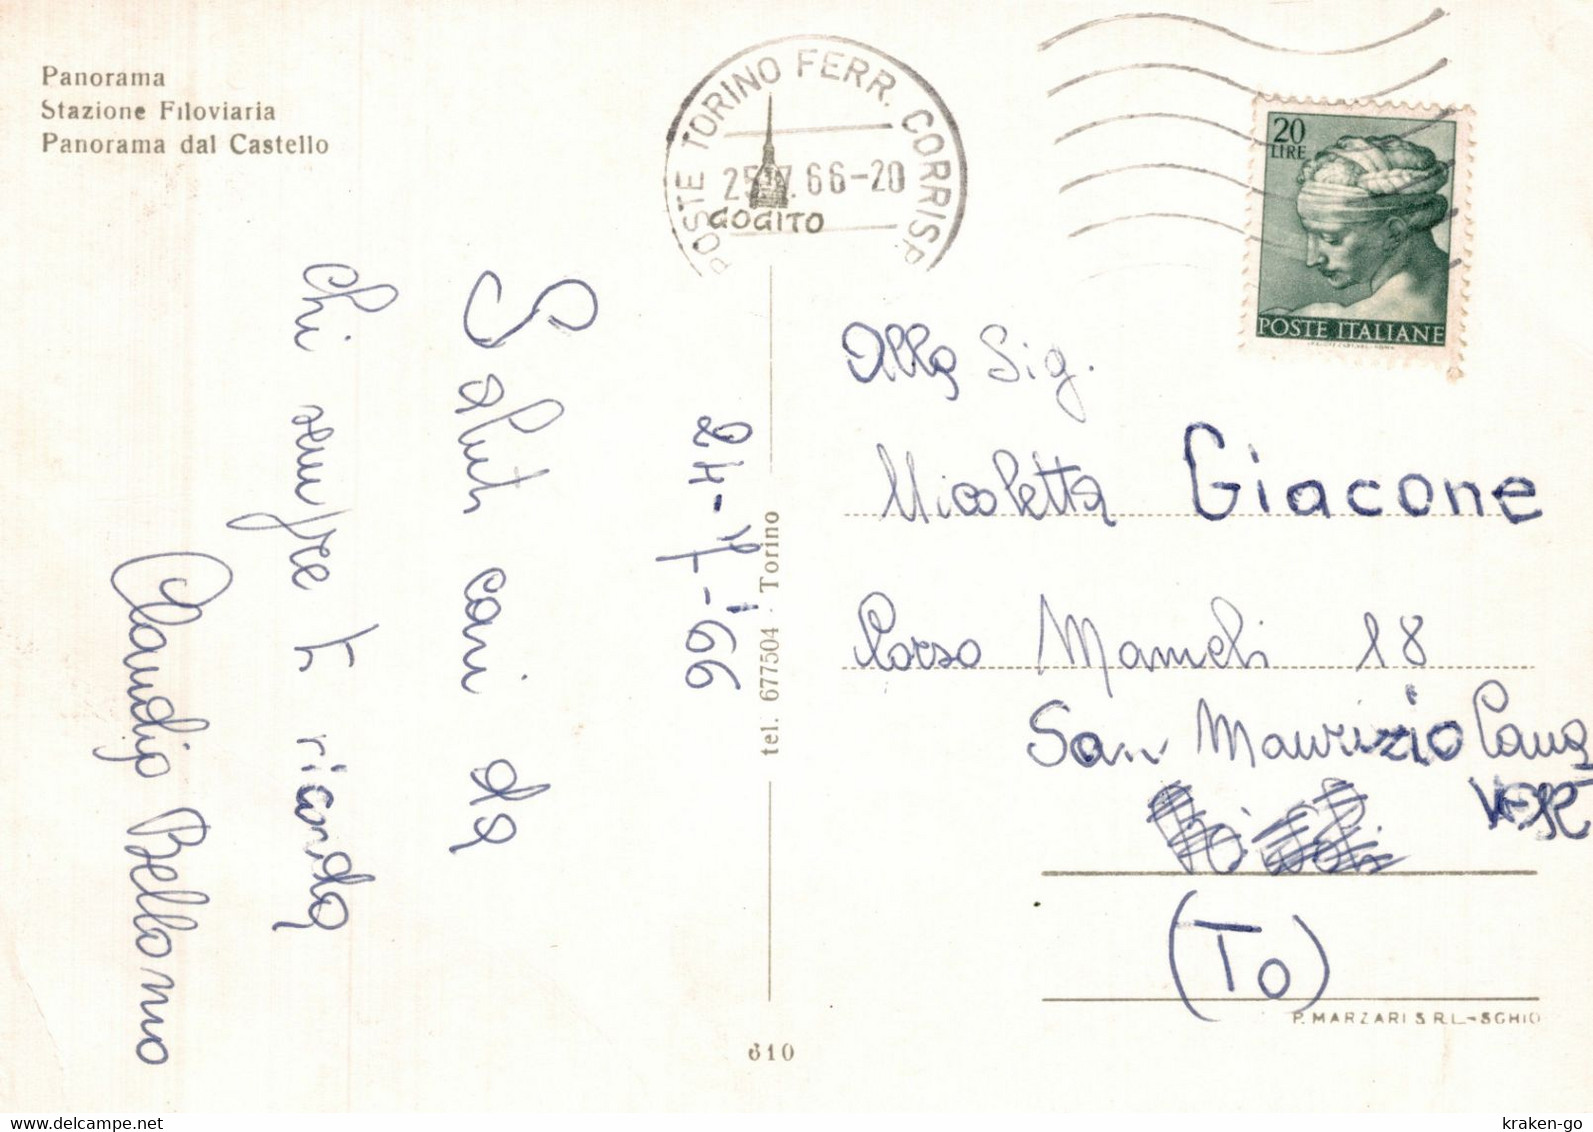 Panorama
Stazione Filoviaria
Panorama dal Castello
POSTE TORINO FERR. CORRISP.
66-20
GOGITO
20
LIRE
POSTE ITALIANE
Saluti cari da
chi sempre ti ricorda
Claudio Bellomo
24-7-'66
tel. 677504 - Torino
Alla Sig.
Nicoletta Giacone
Corso Mameli 18
San Maurizio Cana
VESE
(To)
P. MARZARI S.R.L.-SCHIO
610
kraken-go